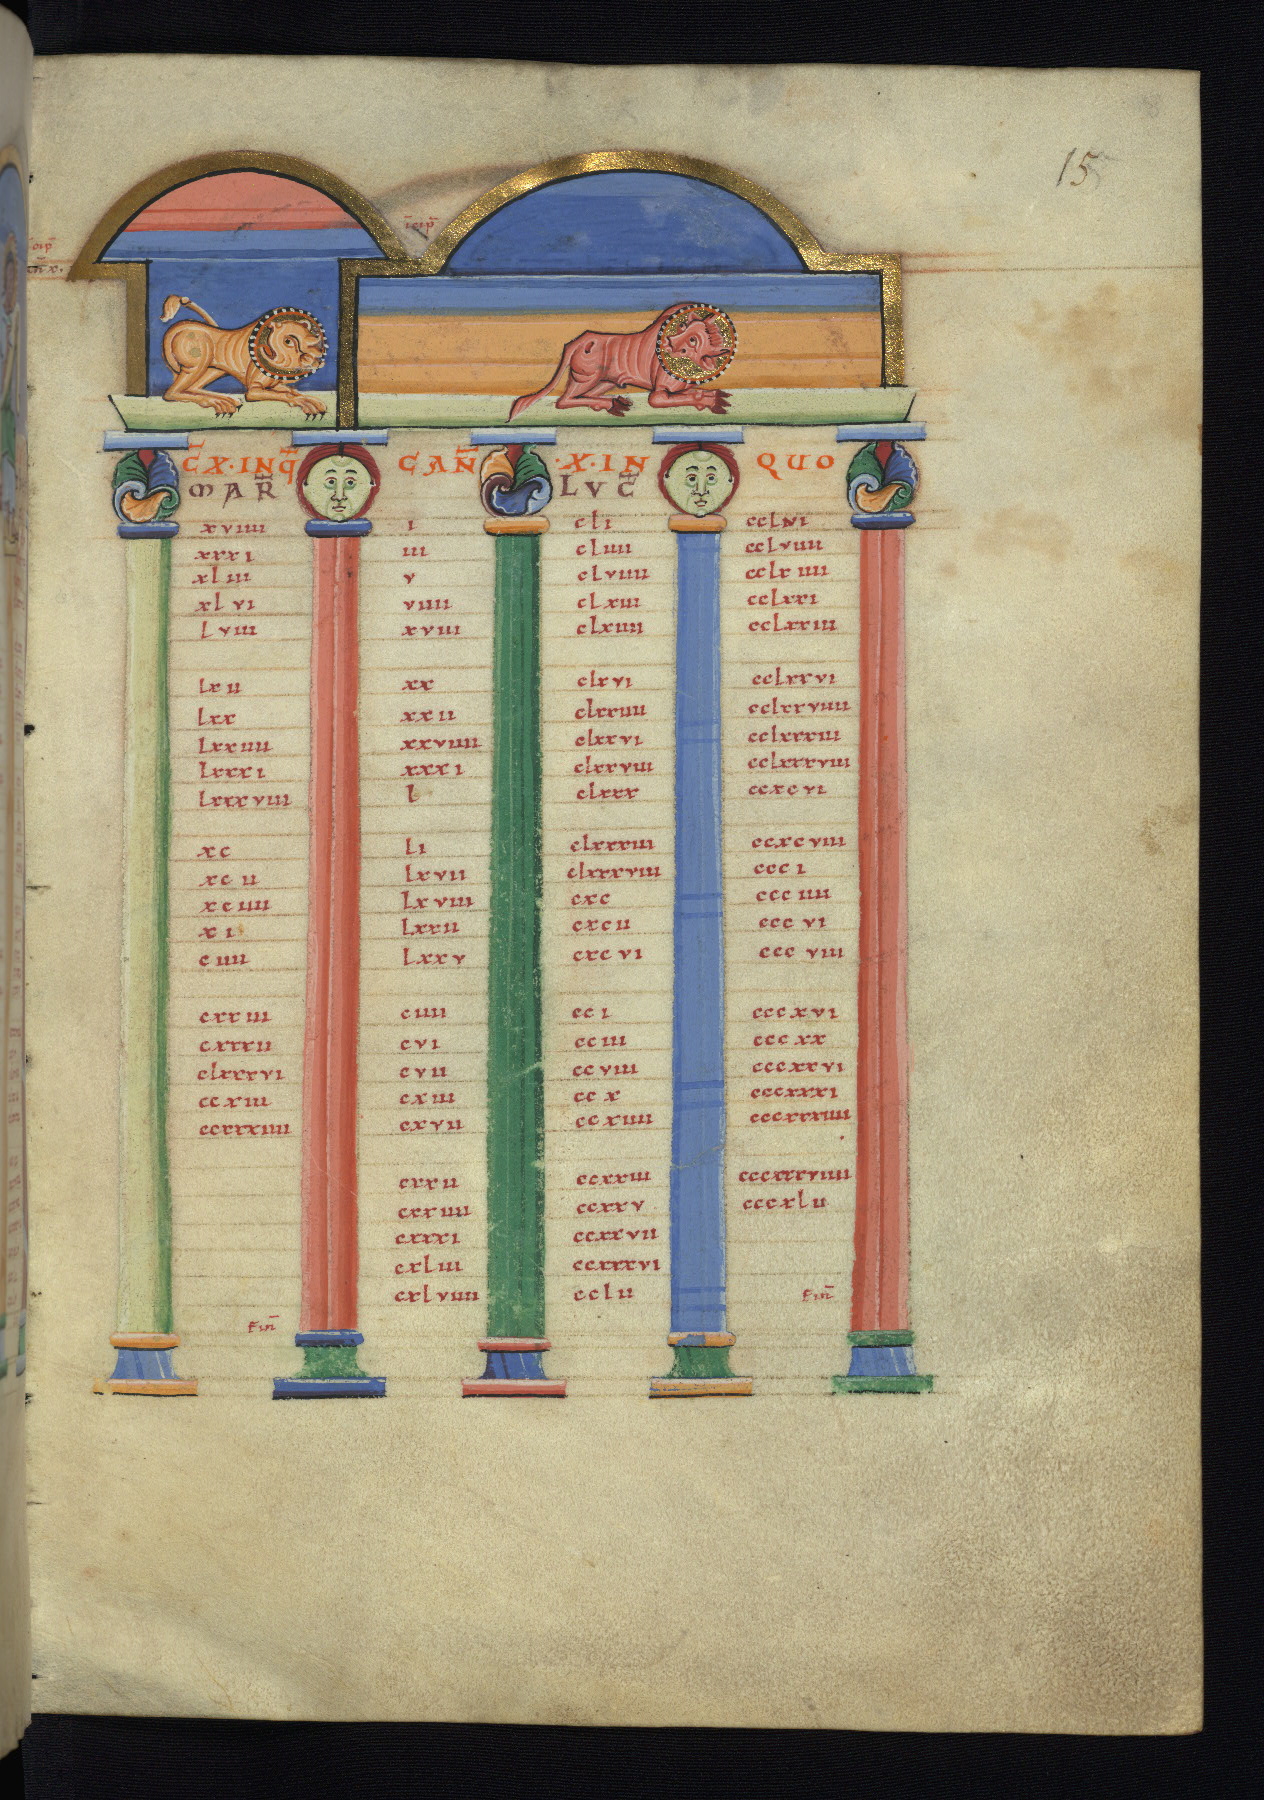 15
incip
C̄X·INQ̄
MAR̄
xviiii
xxxi
xliii
xlvi
lviii
lxii
lxx
lxxiiii
lxxxi
lxxxviii
xc
xcii
xciiii
xi
ciiii
cxxiii
cxxxii
clxxxvi
ccxiii
ccxxxiiii
Fin̄
CAN̄
i
iii
v
viiii
xviii
xx
xxii
xxviiii
xxxi
l
li
lxvii
lxviiii
lxxii
lxxv
ciiii
cvi
cvii
cxiii
cxvii
cxxii
cxxiiii
cxxxi
cxliii
cxlviiii
·X·IN
LVC̄
cli
cliiii
clviiii
clxiii
clxiiii
clxvi
clxxiiii
clxxvi
clxxviii
clxxx
clxxxiii
clxxxviii
cxc
cxcii
cxcvi
cci
cciii
ccviii
ccx
ccxiiii
ccxxiii
ccxxv
ccxxvii
ccxxxvi
cclii
QUO
cclvi
cclviiii
cclxiiii
cclxxi
cclxxiii
cclxxvi
cclxxviiii
cclxxxiii
cclxxxviii
ccxcvi
ccxcviii
ccci
ccciiii
cccvi
cccviii
cccxvi
cccxx
cccxxvi
cccxxxi
cccxxxiiii
cccxxxviiii
cccxlii
Fin̄